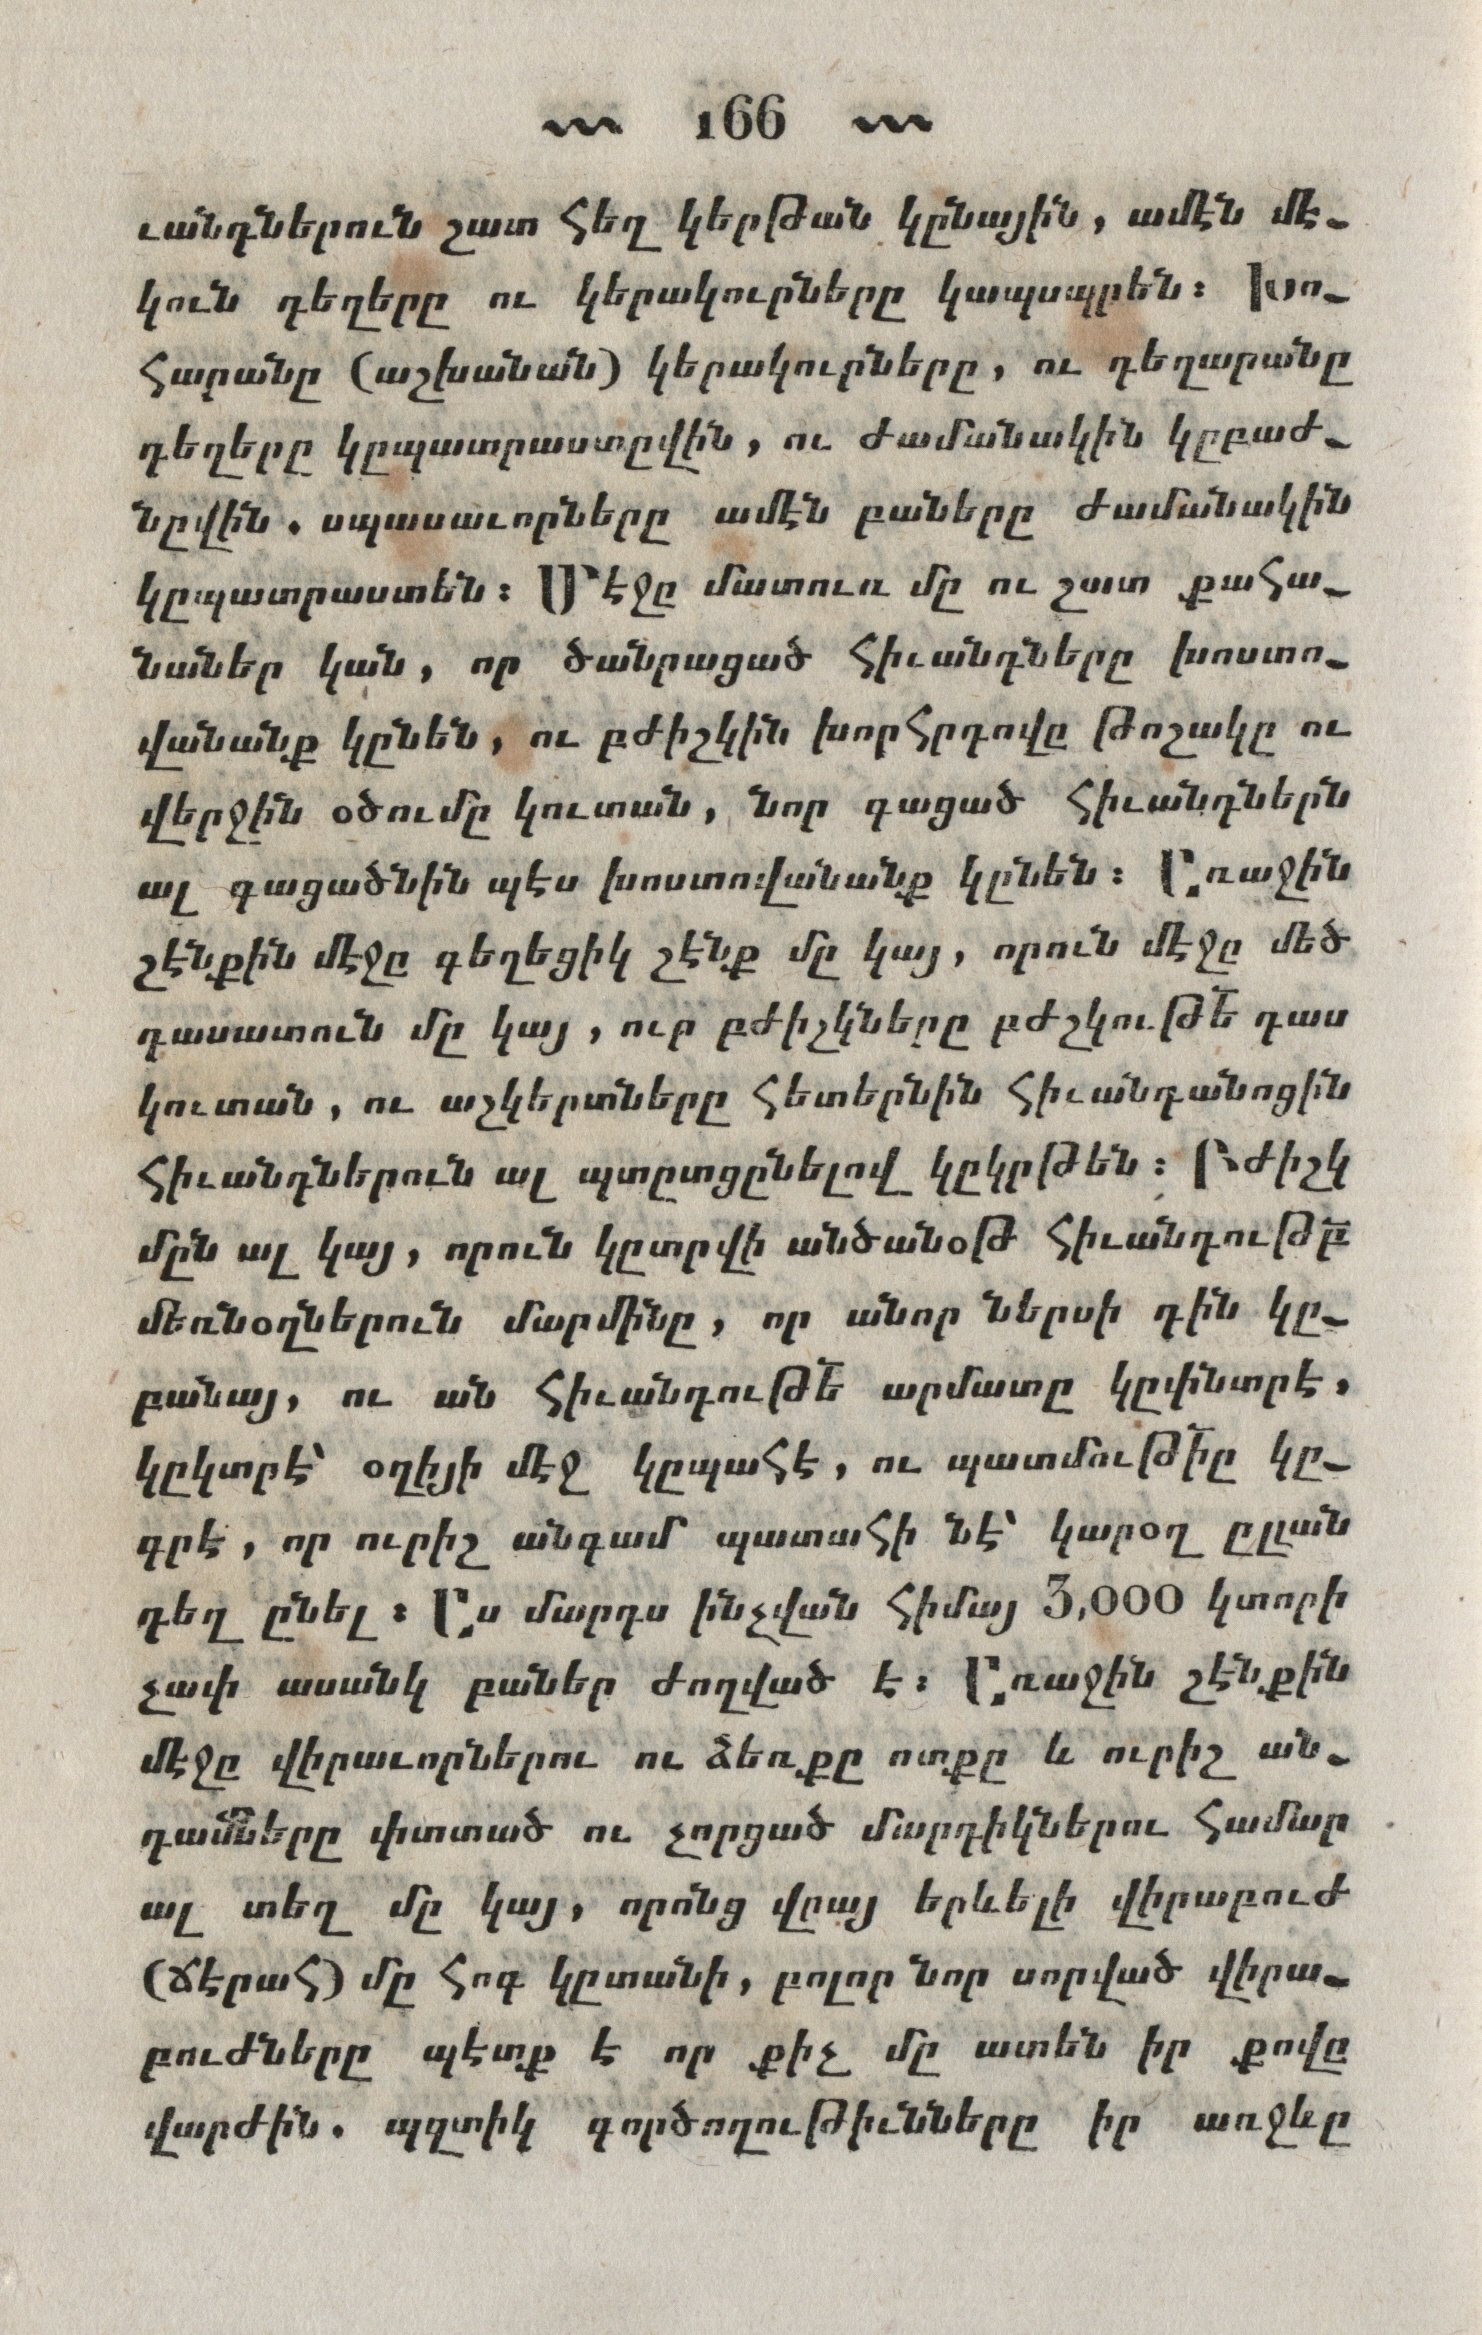 166
ւանդներուն շատ հեղ կերթան կընային, ամէն մէ-
կուն դեղերը ու կերակուրները կապսպրեն։ Խո-
հարանը (աշխանան) կերակուրները, ու դեղարանը
դեղերը կըպատրաստըվին, ու ժամանակին կըբաժ-
նըվին. սպասաւորները ամէն բաները ժամանակին
կըպատրաստեն։ Մէջը մատուռ մը ու շատ քահա-
նաներ կան, որ ծանրացած հիւանդները խոստո-
վանանք կընեն, ու բժիշկին խորհրդովը թոշակը ու
վերջին օծումը կուտան, նոր գացած հիւանդներն
ալ գացածնին պէս խոստովանանք կընեն։ Առաջին
շէնքին մէջը գեղեցիկ շէնք մը կայ, որուն մէջը մեծ
դասատուն մը կայ, ուր բժիշկները բժշկութե՟ դաս
կուտան, ու աշկերտները հետերնին հիւանդանոցին
հիւանդներուն ալ պտըտցընելով կըկրթեն։ Բժիշկ
մըն ալ կայ, որուն կըտրվի անծանօթ հիւանդութբ՟
մեռնօղներուն մարմինը, որ անոր ներսի դին կը-
բանայ, ու ան հիւանդութե՟ արմատը կըփնտրէ,
կըկտրէ՝ օղիյի մէջ կըպահէ, ու պատմութի՟ը կը-
գրէ, որ ուրիշ անգամ պատահի նէ՝ կարօղ ըլլան
դեղ ընել։ Աս մարդս ինչվան հիմայ 3,000 կտորի
չափ ասանկ բաներ ժողված է։ Առաջին շէնքին
մէջը վիրաւորներու ու ձեռքը ոտքը և ուրիշ ան-
դամները փտտած ու չորցած մարդիկներու համար
ալ տեղ մը կայ, որոնց վրայ երևելի վիրաբուժ
(ճէրահ) մը հոգ կըտանի, բոլոր նոր սորված վիրա-
բուժները պէտք է որ քիչ մը ատեն իր քովը
վարժին. պզտիկ գործողութիւնները իր առջևը